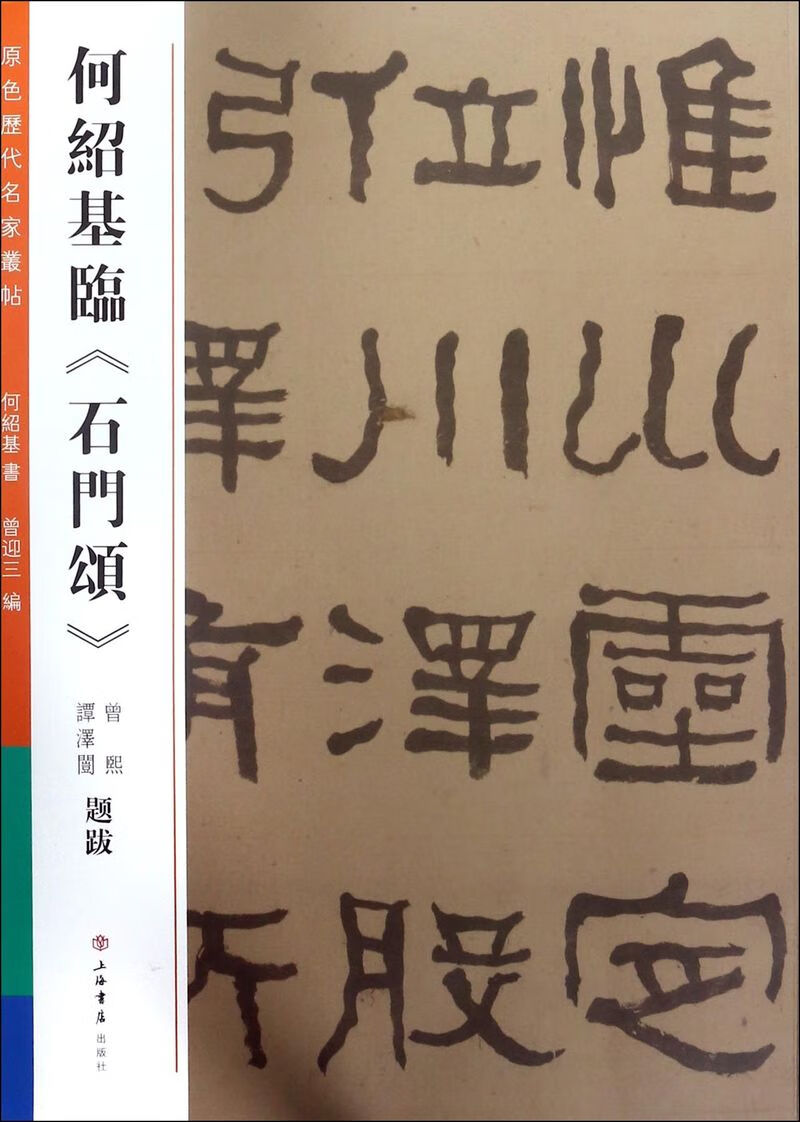 原色歷代名家叢帖
何紹基書 曾迎三 編
何紹基臨《石門頌》
曾熙
譚澤闓
题跋
上海書店出版社
惟巛靈定
位川澤股
躬澤有所